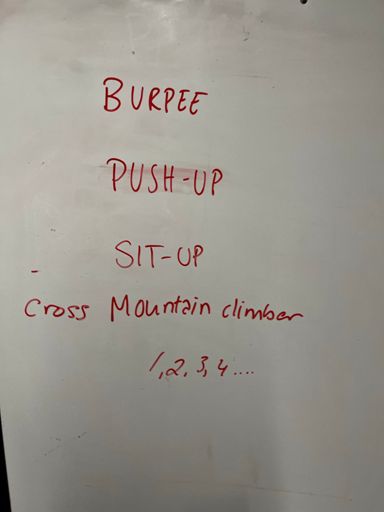 BURPEE
PUSH-UP
SIT-UP
Cross Mountain climber
1,2,3,4....